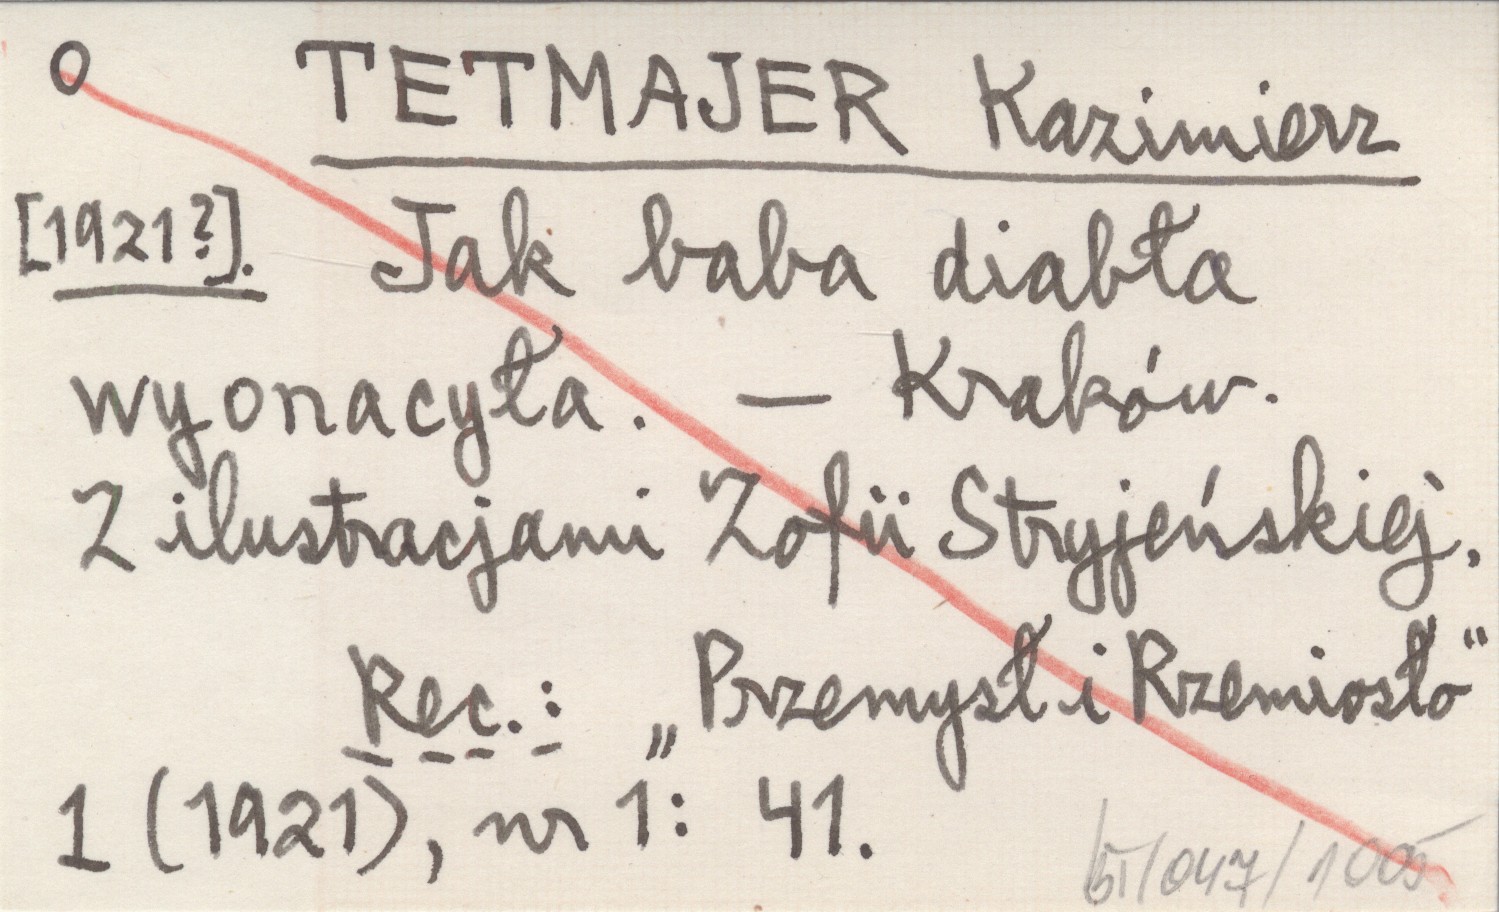 O TETMAJER Kazimierz
[1921?]. Jak baba diabła
wyonacyła. — Kraków.
Z ilustracjami Zofii Stryjeńskiej.
Rec.: „Przemysł i Rzemiosło"
1 (1921), nr 1: 41.
/047/1005